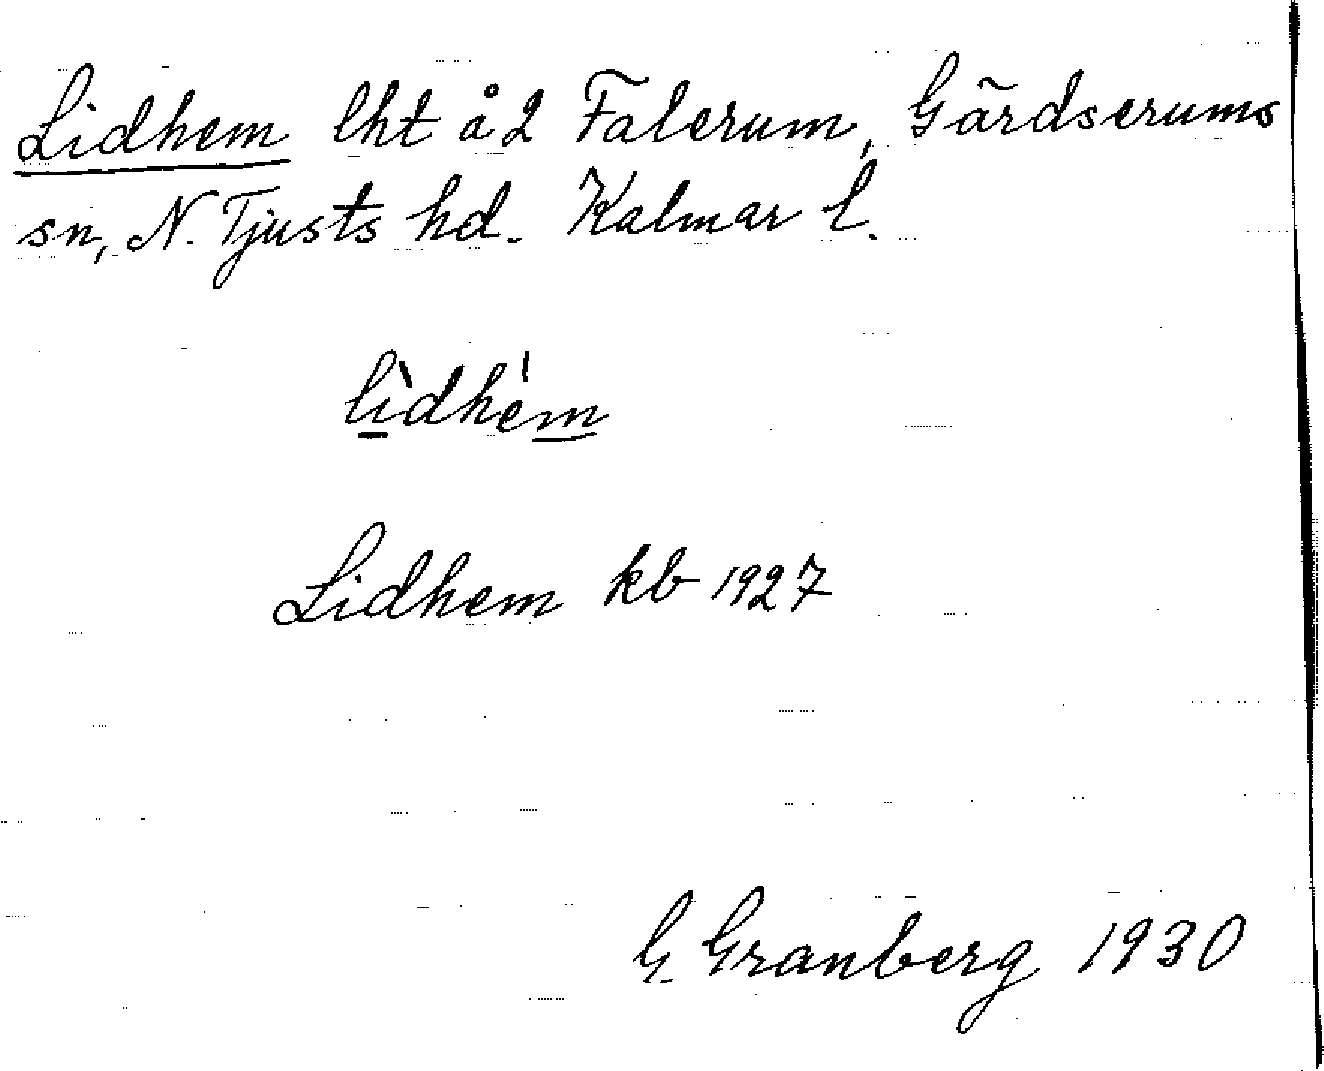 Lidhem lht å 2 Falerum, Gärdserums
sn, N. Tjusts hd. Kalmar l.
lìdhém
Lidhem kb 1927
G. Granberg 1930